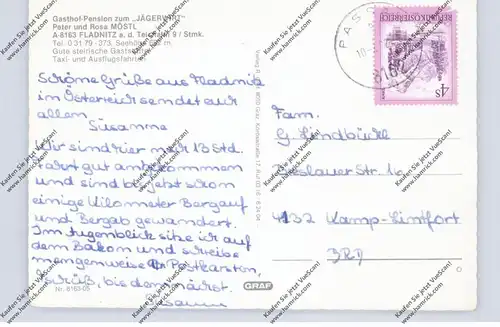 Gasthof-Pension zum „JÄGERWIRT"
Peter und Rosa MÖSTL
A-8163 FLADNITZ a. d. Teichalm 9 / Stmk.
Tel. 0 31 79 - 373, Seehöhe m
Gute steirische Gaststätte
Taxi- und Ausflugsfahrten
Schöne Grüße aus Fladnitz
in Österreich sendet euch
allen
Susanne
Wir sind hier nach 13 Std.
Fahrt gut angekommen
und sind bis jetzt schon
einige Kilometer Bergauf
und Bergab gewandert.
Im Augenblick sitze ich auf
dem Balkon und schreibe
mengenweise Postkarten,
Gruß, bis demnächst.
Susanne
Nr. 8163-05
GRAF
Verlag
REPUBLIK ÖSTERREICH
S4
PASS
8163
Fam.
G. Lindbüchl
Str. 1a
4132 Kamp-Lintfort
BRD
Kaufen Sie jetzt VieeStan!
www.hamrick.com